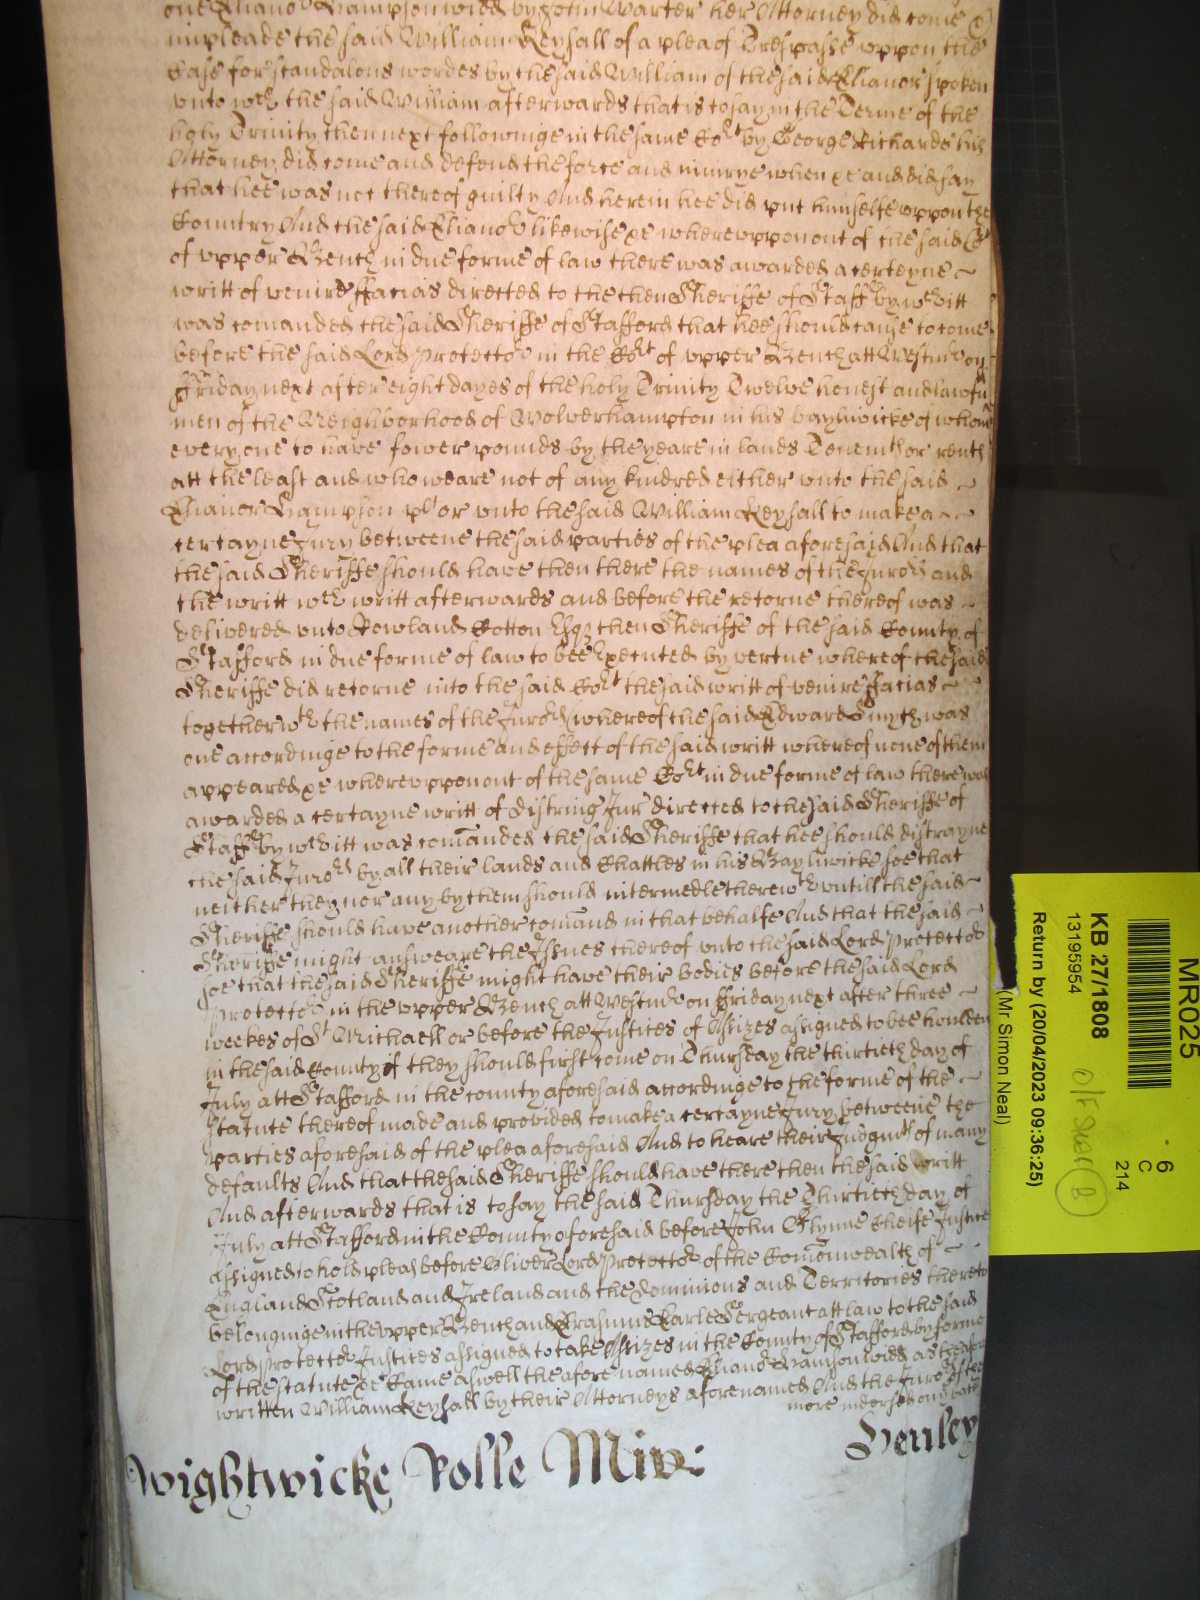 one Elianor Bampson widd by John Warter her Attorney did come &
impleade the said William Keysall of a plea of Trespasse uppon the
Case for scandalous wordes by the said William of the said Elianor spoken
unto wch the said William afterwards that is to say in the Terme of the
holy Trinity then next followinge in the same Cort by George Richards his
Attorney did come and defend the force and iniurye when &c and did say
that hee was not thereof guilty And herein hee did put himselfe uppon the
Country And the said Elianor likewise &c whereuppon out of the said Cort
of upper Bench in due forme of law there was awarded a certeyne
writt of venire ffacias directed to the then Sheriffe of Staff by wch writt
was comanded the said Sheriffe of Stafford that hee should cause to come
before the said Lord Protector in the Cort of upper Bench att Westmr on
ffriday next after eight dayes of the holy Trinity Twelve honest and lawfu
men of the Neighborhood of Wolverhampton in his bayliwicke of whom
every one to have fower pounds by the yeare in lands Tenemts or rents
att the least and who weare not of any kindred either unto the said
Elianor Bampson pl or unto the said William Keysall to make a
certayne Jury betweene the said parties of the plea aforesaid And that
the said Sheriffe should have then there the names of the Jurors and
the writt wch writt afterwards and before the retorne thereof was
delivered unto Rowland Cotton Esqr then Sheriffe of the said County of
Stafford in due forme of law to bee Executed by vertue whereof the said
Sheriffe did retorne into the said Cort the said writt of venire ffacias
together wth the names of the Jurors (whereof the said Edward Smyth was
one accordinge to the forme and effect of the said writt whereof none of them
appeared &c whereuppon out of the same Cort in due forme of law there was
awarded a certayne writt of distring Jur directed to the said Sheriffe of
Staff by wch writt was comanded the said Sheriffe that hee should distrayne
the said Jurors by all their lands and Chattles in his Bayliwicke soe that
neither they nor any by them should intermedle therewth untill the said
Sheriffe should have another comand in that behalfe And that the said
Sheriffe might answeare the Issues thereof unto the said Lord Protector
soe that the said Sheriffe might have their bodies before the said Lord
Protector in the upper Bench att Westmr on ffriday next after three
weekes of St Michaell or before the Justices of Assizes assigned to bee houlden
in the said County if they should first come on Thursday the thirtieth day of
July att Stafford in the county aforesaid accordinge to the forme of the
statute thereof made and provided to make a certayne Jury betweene the
parties aforesaid of the plea aforesaid And to heare their Judgmts of many
defaults And that the said Sheriffe should have there then the said writt
And afterwards that is to say the said Thursday the Thirtieth day of
July att Stafford in the County aforesaid before John Glynne Cheife Justice
assigned to hold pleas before Oliver Lord Protector of the Comonwealth of
England Scotland and Ireland and the Dominions and Territories thereto
belonginge in the upper Bench and Erasmus Earle Sergeant att law to the said
Lord Protector Justices assigned to take Assizes in the County of Stafford by forme
of the statute &c Came aswell the afore named Elianor Bamson widd as the afore
written William Keysall by their Attorneys aforenamed And the Jurors of the
more indorsed one
Wightwicke Rolle Miv:
Henley
MR025
KB 27/1808
13195954
Return by (20/04/2023 09:36:25)
(Mr Simon Neal)
6
C
214
B